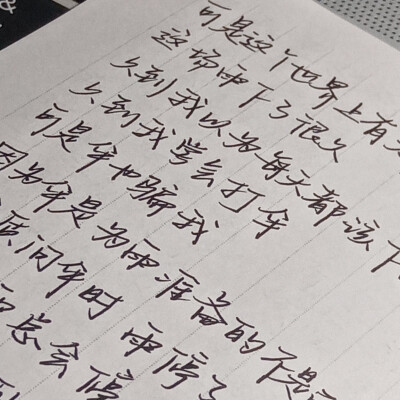 可是这个世界上有
这场雨下了很久
久到我以为每天都该下
久到我学会打伞
可是伞也骗我
因为伞是为雨准备的不是
质问伞时 雨停了
总会停